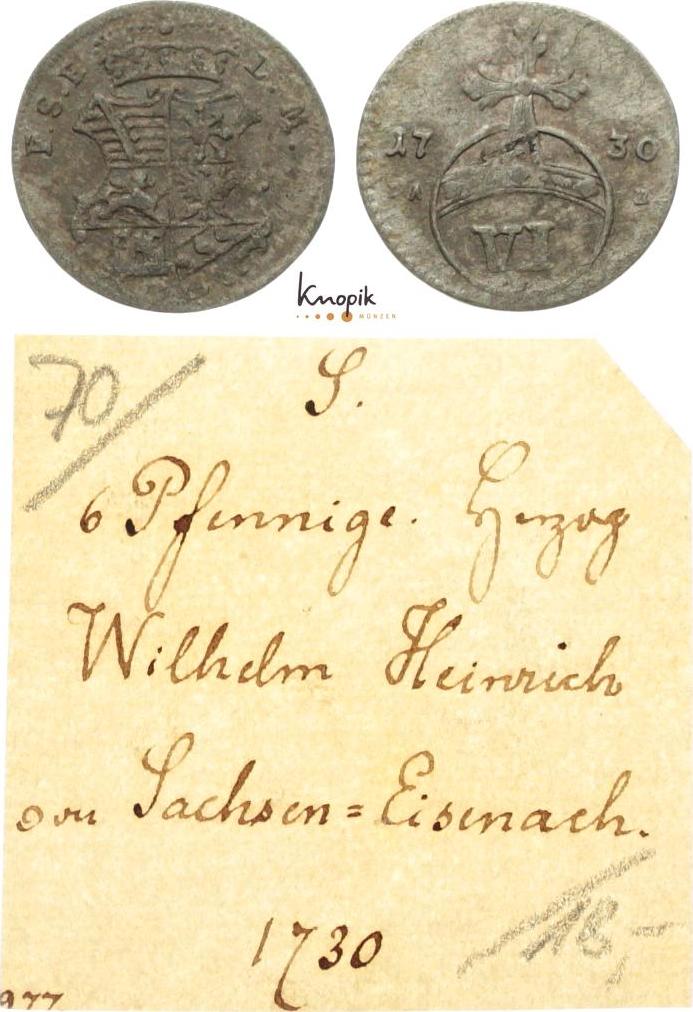 F. S. E. L. M.
17 30
VI
Knopik
MÜNZEN
70/
S.
6 Pfennige. Herzog
Wilhelm Heinrich
von Sachsen=Eisenach.
1730
18,-
977